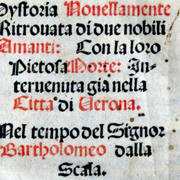 Hystoria Nouellamente
Ritrouata di due nobili
Amanti: Con la loro
Pietosa Morte: In-
teruenuta gia nella
Citta di Uerona.
Nel tempo del Signor
Bartholomeo dalla
Scala.